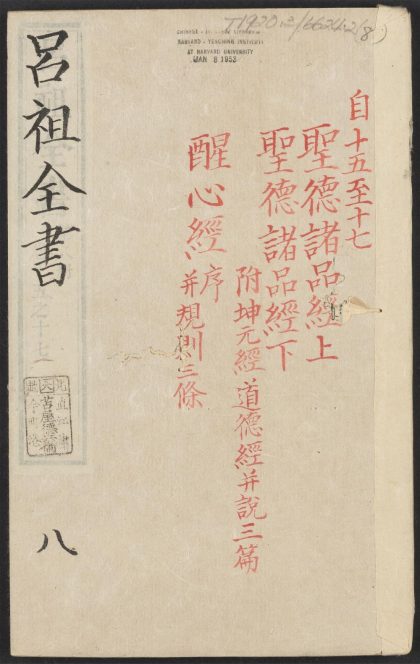 T1920.2/6624.2(8)
CHINESE - JAPANESE LIBRARY
HARVARD - YENCHING INSTITUTE
AT HARVARD UNIVERSITY
JAN 8 1953
自十五至十七
聖德諸品經上
聖德諸品經下
附坤元經道德經并說三篇
醒心經序
并規則三條
呂祖全書
八